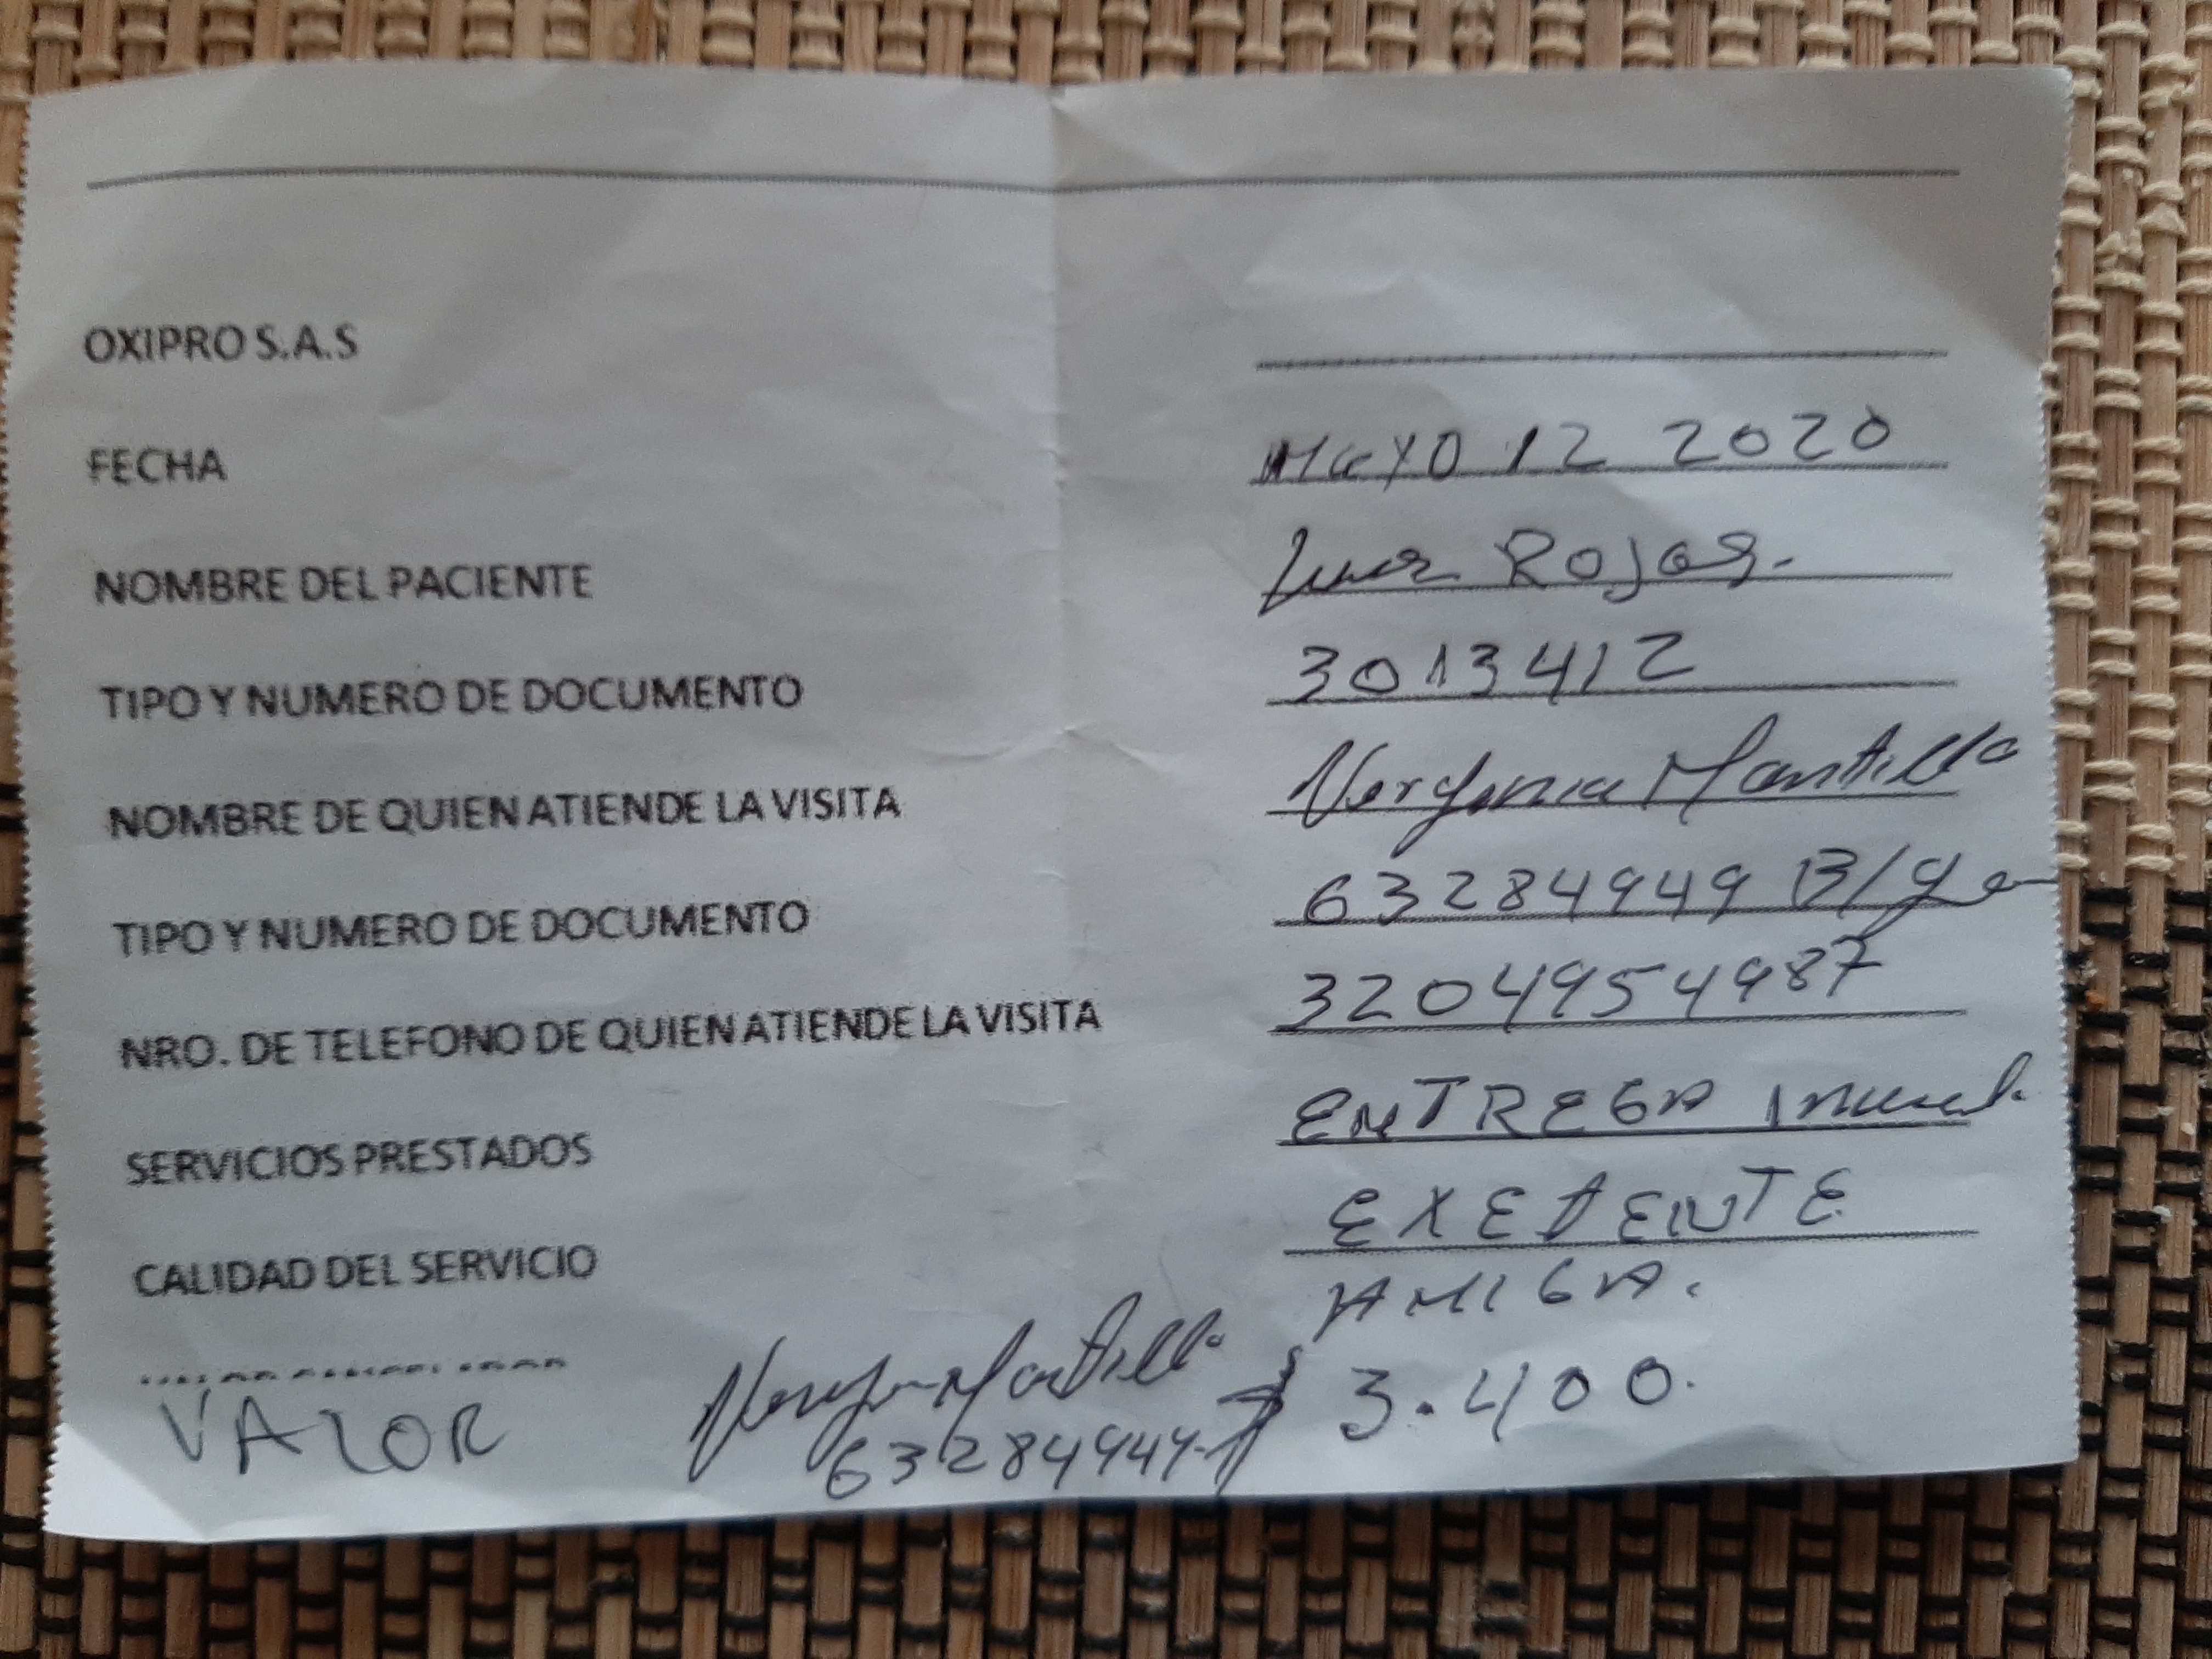 OXIPRO S.A.S
FECHA MAYO 12 2020
NOMBRE DEL PACIENTE Luis ROJAS.
TIPO Y NUMERO DE DOCUMENTO 3013412
NOMBRE DE QUIEN ATIENDE LA VISITA Mantilla
TIPO Y NUMERO DE DOCUMENTO 63284949 B/ga
NRO. DE TELEFONO DE QUIEN ATIENDE LA VISITA 3204954987
SERVICIOS PRESTADOS ENTREGA
CALIDAD DEL SERVICIO
AMIGA.
VALOR Mantilla $ 3.400.